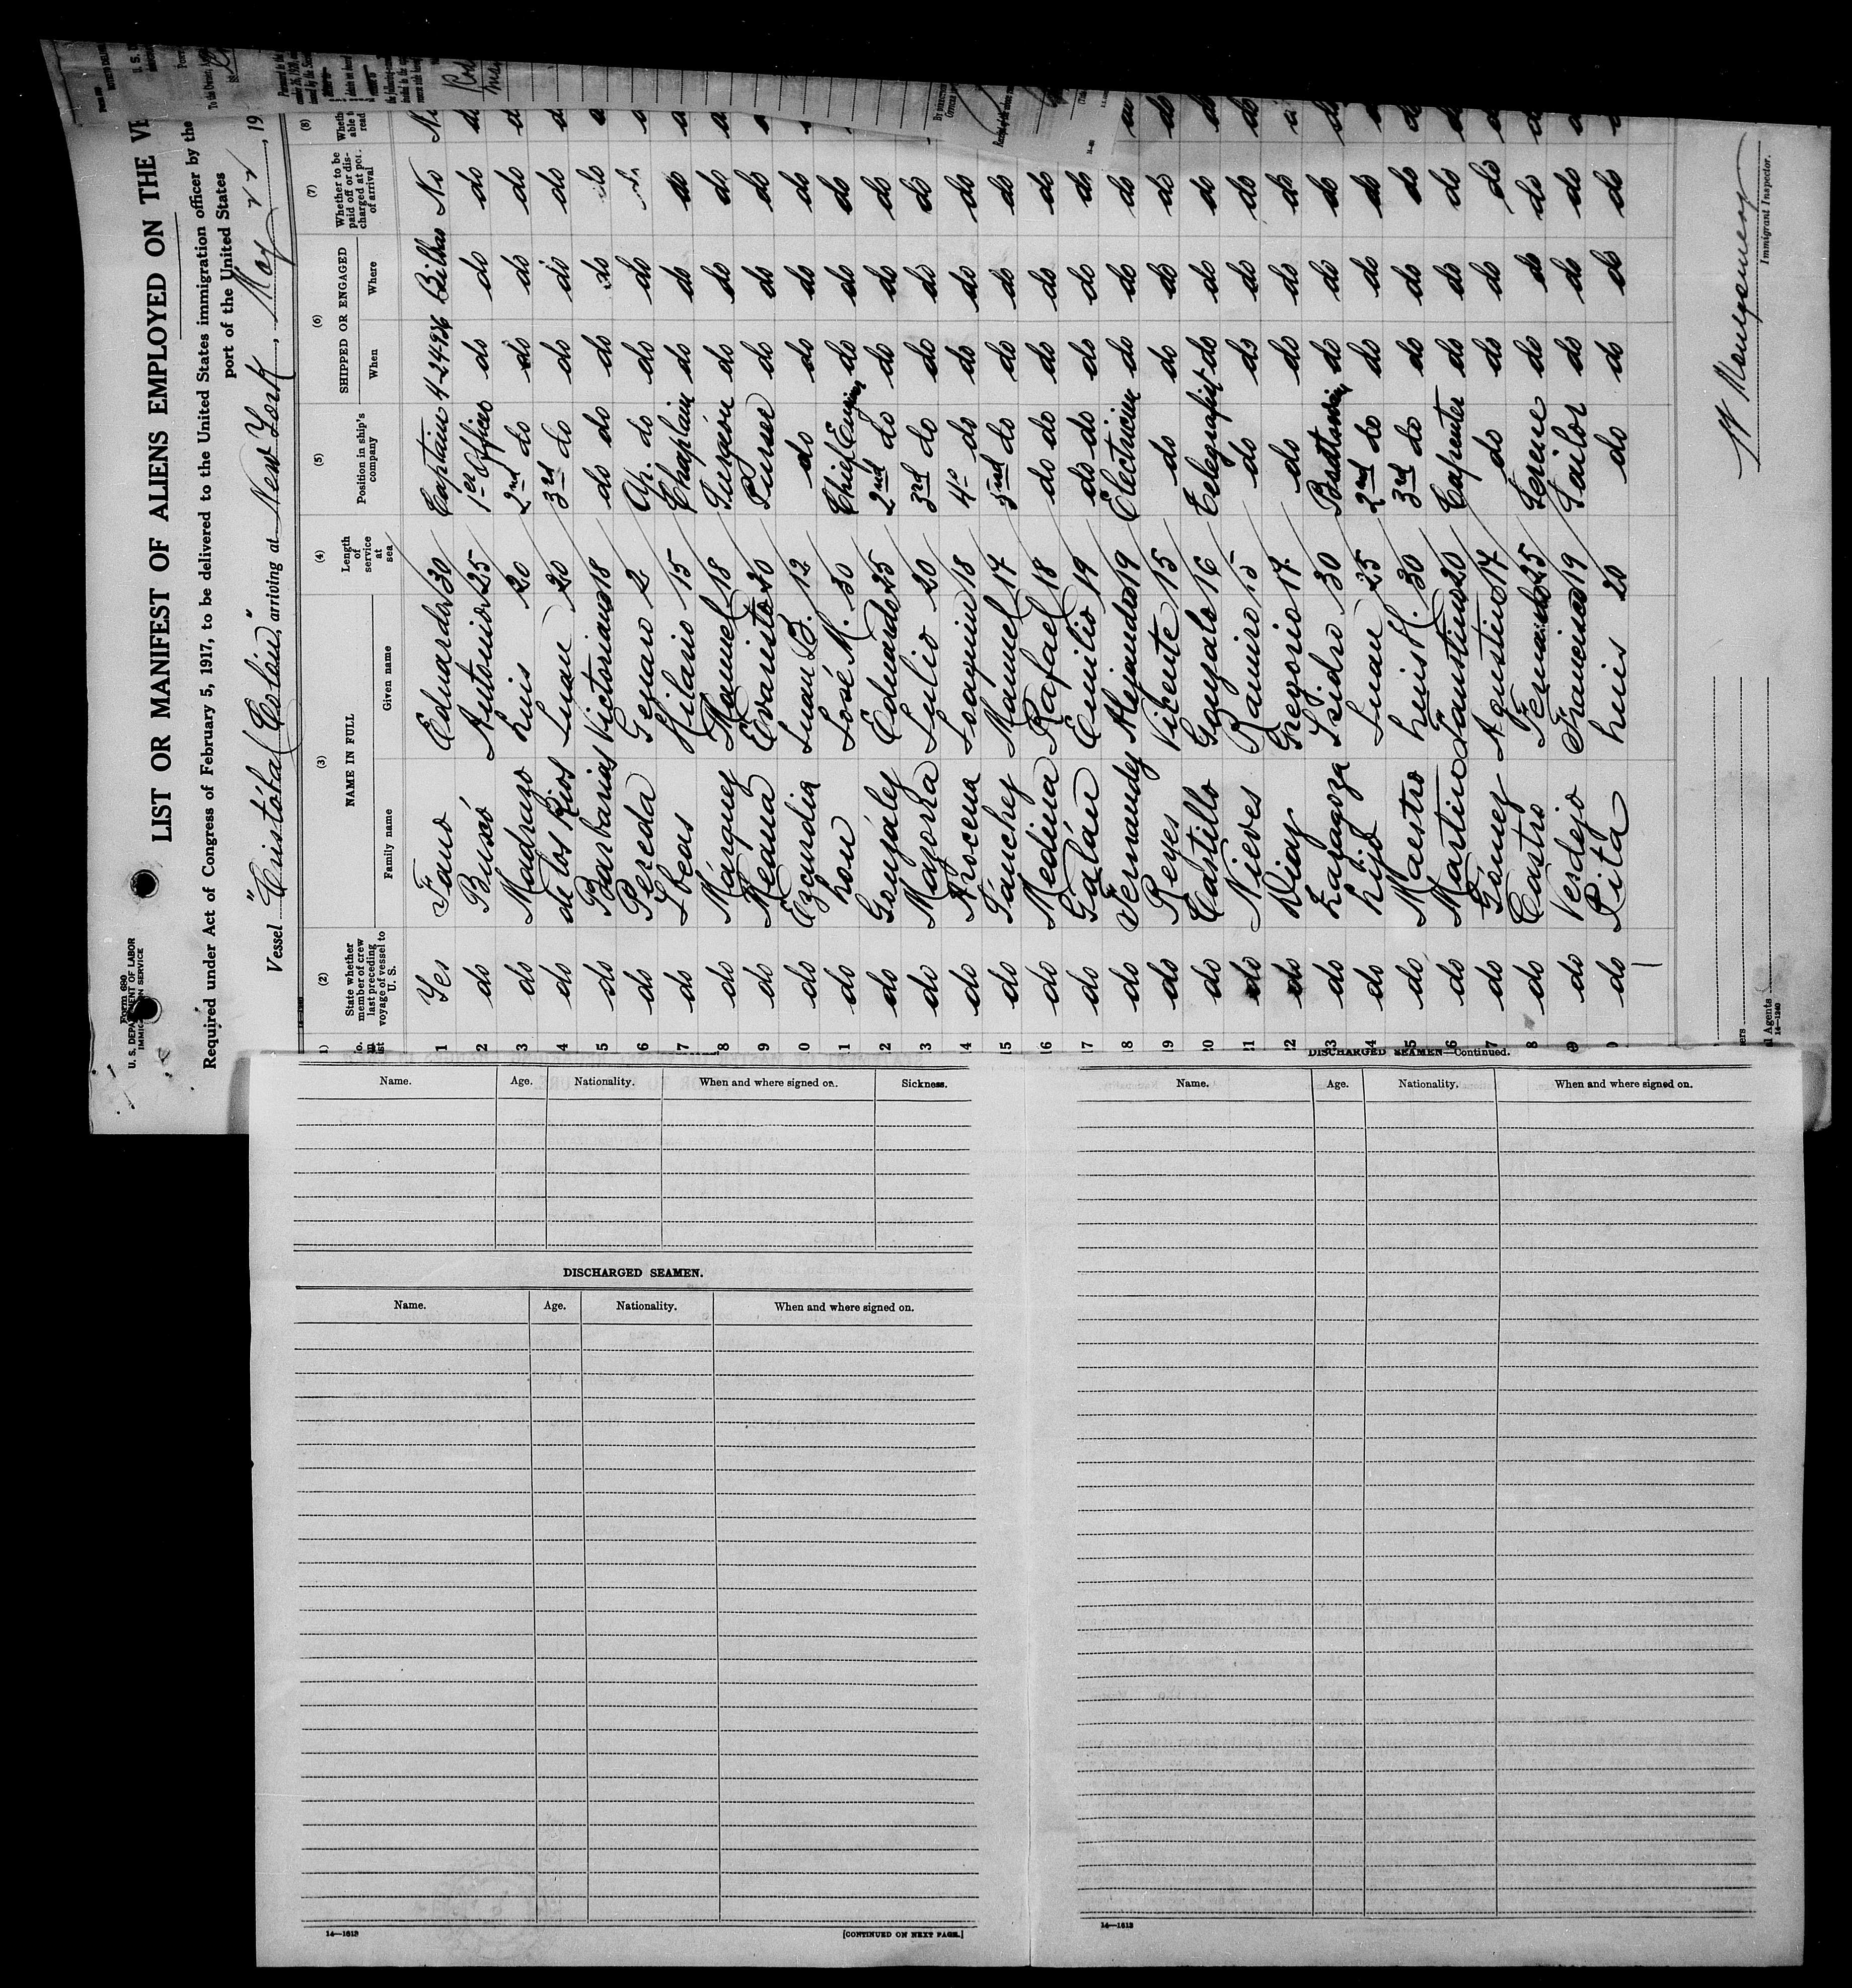 Form 680
U. S. DEPARTMENT OF LABOR
IMMIGRATION SERVICE
LIST OR MANIFEST OF ALIENS EMPLOYED ON THE VE
Required under Act of Congress of February 5, 1917, to be delivered to the United States immigration officer by the
port of the United States
Vessel "Cristóbal Colón", arriving at New York, May 22, 19
(2) (3) (4) (5) (6) (7) (8)
State whether member of crew last preceding voyage of vessel to U. S.
NAME IN FULL
Family name Given name
Length of service at sea
Position in ship's company
SHIPPED OR ENGAGED
When Where
Whether to be paid off or discharged at port of arrival
1 Yes Fano Eduardo 30 Captain 4-24-926 Bilbao No
2 do Buxó Antonio 25 1er Officer do do do
3 do Madrazo Luis 20 2nd do do do do
4 do de los Rios Juan 20 3rd do do do do
5 do Barbarias Victoriano 18 do do do do do
6 do Pereda Genaro 2 Ap. do do do
7 do Ibeas Hilario 15 Chaplain do do do
8 do Márquez Manuel 18 Surgeon do do do
9 do Meana Evaristo 20 Purser do do do
0 do Ezcurdia Juan B. 12 do do do do
1 do Lou José M. 30 Chief Engine do do do
2 do González Eduardo 25 2nd do do do do
13 do Mayora Julio 20 3rd do do do do
14 do Arocena Joaquin 18 4º do do do do
15 do Sánchez Manuel 17 5nd do do do do
16 do Medina Rafael 18 do do do do do
17 do Galán Emilio 19 do do do do do
18 do Fernandez Alejandro 19 Electrician do do do
19 do Reyes Vicente 15 do do do do
20 do Castillo Gonzalo 16 Telegrafist do do do
21 do Nieves Ramiro 15 do do do do
22 do Diaz Gregorio 17 do do do do
23 do Zaragoza Isidro 30 do do do
24 do Lijó Juan 25 2nd do do do do
25 do Maestro Luis H. 30 3rd do do do do
26 do Martino Faustino 20 Carpenter do do do
7 do Gómez Agustin 17 do do do do
8 do Castro 25 do do do
do Verdejo Francisco 19 Tailor do do do
0 do Pita Luis 20 do do do do
Immigrant Inspector.
14—1240
Name. Age. Nationality. When and where signed on. Sickness.
DISCHARGED SEAMEN.
Name. Age. Nationality. When and where signed on.
14—1613
[CONTINUED ON NEXT PAGE.]
DISCHARGED SEAMEN—Continued.
Name. Age. Nationality. When and where signed on.
14—1613